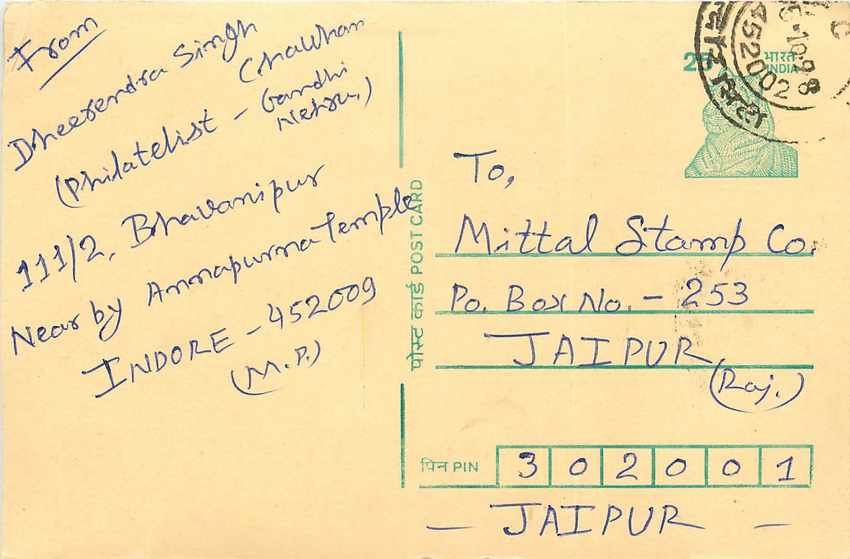 From
Dheerendra Singh
Chauhan
(Philatelist - Gandhi
Nehru)
111/2, Bhavanipur
Near by Annapurna Temple
INDORE - 452009
(M.P.)
पोस्ट कार्ड POST CARD
25
भारत
INDIA
452002
To,
Mittal Stamp Co.
Po. Box No. - 253
JAIPUR
(Raj.)
पिन PIN 3 0 2 0 0 1
- JAIPUR -